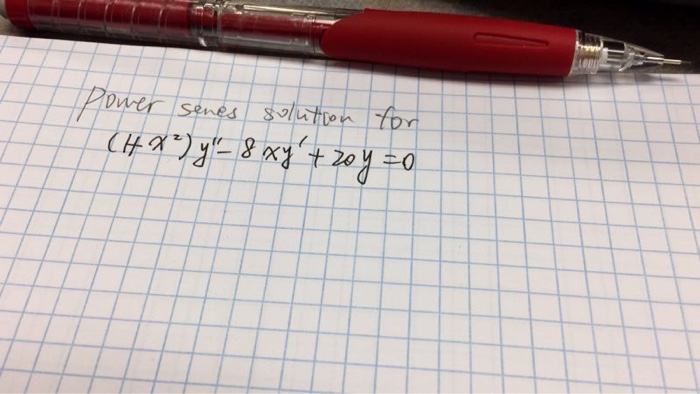 Power series solution for
(1+x²)y″-8xy′+20y=0